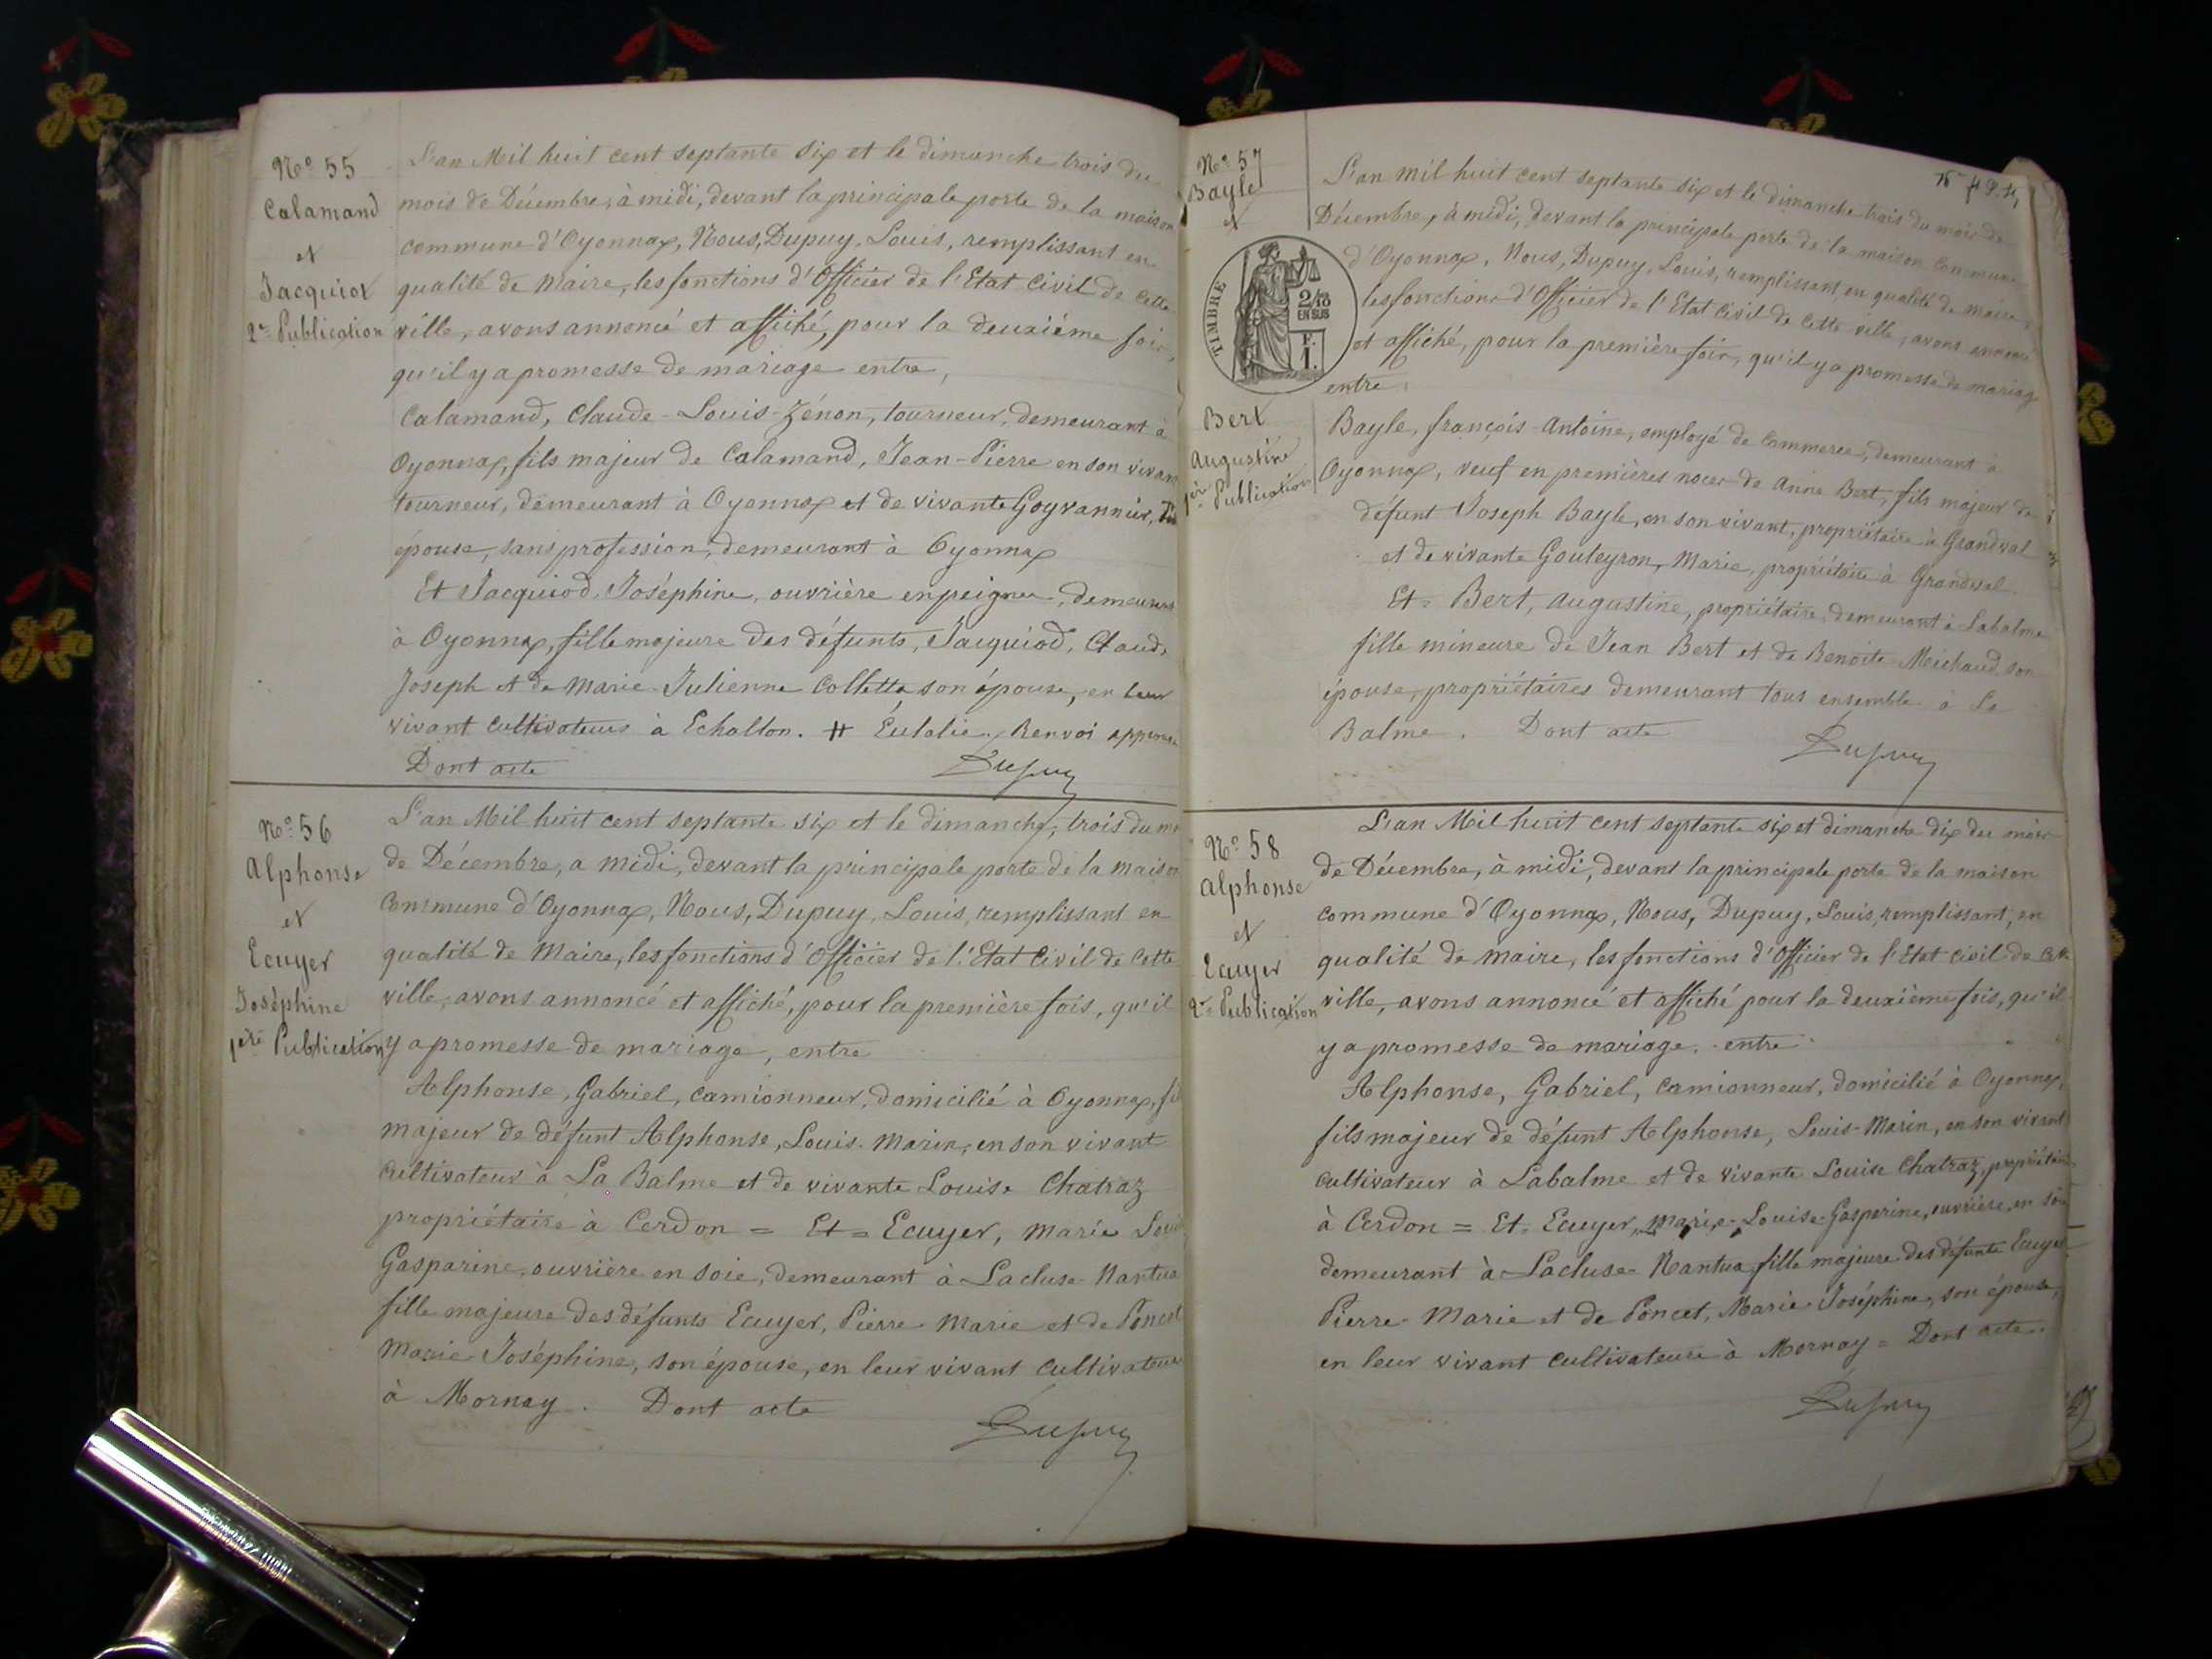 No. 55
Calamand
et
Jacquiot
2e Publication
L'an Mil huit cent septante six et le dimanche trois du
mois de Décembre, à midi, devant la principale porte de la maison
commune d'Oyonnax, Nous, Dupuy, Louis, remplissant en
qualité de Maire, les fonctions d'Officier de l'Etat Civil de cette
ville, avons annoncé et affiché, pour la deuxième fois,
qu'il y a promesse de mariage entre,
Calamand, Claude-Louis-Zénon, tourneur, demeurant à
Oyonnax, fils majeur de Calamand, Jean-Pierre en son vivant
tourneur, demeurant à Oyonnax et de vivante Goyvannier,
épouse, sans profession, demeurant à Oyonnax
Et Jacquiod, Joséphine, ouvrière en peignes, demeurant
à Oyonnax, fille majeure des défunts, Jacquiod, Claude
Joseph et de Marie-Julienne Collette, son épouse, en leur
vivant cultivateurs à Echallon. # Eulalie. Renvoi approuvé
Dont acte
Dupuy
No. 56
Alphonse
et
Ecuyer
Joséphine
1ère Publication
L'an Mil huit cent septante six et le dimanche, trois du mo
de Décembre, a midi, devant la principale porte de la maison
Commune d'Oyonnax, Nous, Dupuy, Louis, remplissant en
qualité de Maire, les fonctions d'Officier de l'Etat Civil de cette
ville, avons annoncé et affiché, pour la première fois, qu'il
y a promesse de mariage, entre
Alphonse, Gabriel, camionneur, domicilié à Oyonnax, fi
majeur de défunt Alphonse, Louis-Marin, en son vivant
cultivateur à La Balme et de vivante Louise Chatraz
propriétaire à Cerdon = Et = Ecuyer, Marie Loui
Gasparine, ouvrière en soie, demeurant à Lacluse-Nantua
fille majeure des défunts Ecuyer, Pierre-Marie et de Poncet
Marie Joséphine, son épouse, en leur vivant cultivateurs
à Mornay. Dont acte
Dupuy
No. 57
Bayle
et
TIMBRE
2/10
EN SUS
F.
1.
Bert
Augustine
1ère Publication
L'an mil huit cent septante six et le dimanche trois du mois de
Décembre, à midi, devant la principale porte de la maison commune
d'Oyonnax, Nous, Dupuy, Louis, remplissant en qualité de maire,
les fonctions d'Officier de l'Etat Civil de cette ville, avons annoncé
et affiché, pour la première fois, qu'il y a promesse de mariage
entre
Bayle, françois-Antoine, employé de commerce, demeurant à
Oyonnax, veuf en premières noces de Anne Bert, fils majeur de
défunt Joseph Bayle, en son vivant, propriétaire à Grandval
et de vivante Gouteyron, Marie, propriétaire à Grandval.
Et = Bert, Augustine, propriétaire, demeurant à Labalme
fille mineure de Jean Bert et de Benoite Michaud, son
épouse, propriétaires demeurant tous ensemble à La
Balme. Dont acte
Dupuy
No. 58
Alphonse
et
Ecuyer
2e Publication
L'an Mil huit cent septante six et dimanche dix du mois
de Décembre, à midi, devant la principale porte de la maison
commune d'Oyonnax, Nous, Dupuy, Louis, remplissant, en
qualité de maire, les fonctions d'Officier de l'Etat Civil de cette
ville, avons annoncé et affiché pour la deuxième fois, qu'il
y a promesse de mariage. entre
Alphonse, Gabriel, camionneur, domicilié à Oyonnax,
fils majeur de défunt Alphonse, Louis-Marin, en son vivant
cultivateur à Labalme et de vivante Louise Chatraz, propriétaire
à Cerdon = Et. Ecuyer, Marie-Louise-Gasparine, ouvrière en soie
demeurant à Lacluse-Nantua, fille majeure des défunts Ecuyer
Pierre-Marie et de Poncet, Marie Joséphine, son épouse,
en leur vivant cultivateurs à Mornay = Dont acte.
Dupuy